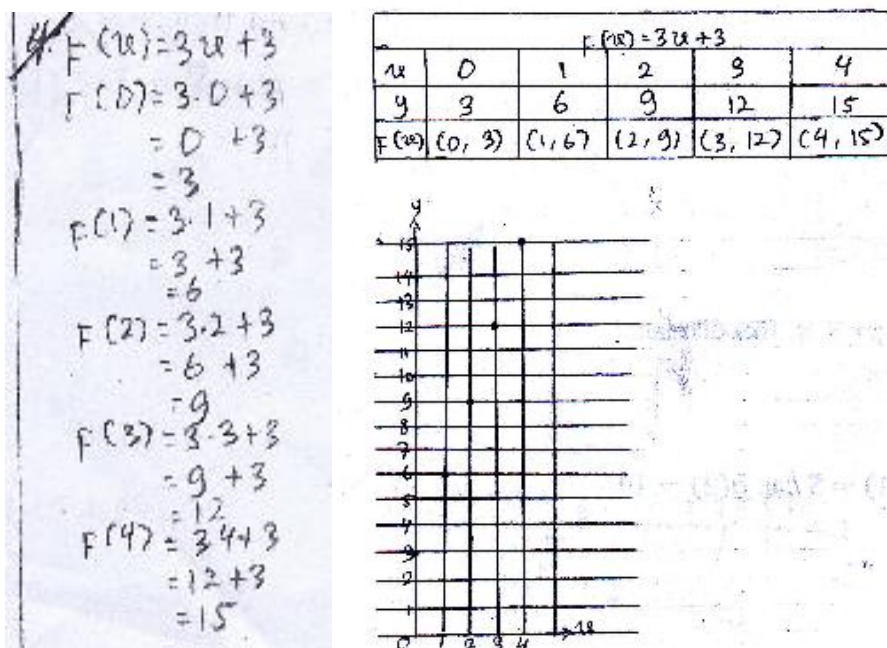 4. F(x) = 3x + 3
F(0) = 3.0 + 3
= 0 + 3
= 3
F(1) = 3.1 + 3
= 3 + 3
= 6
F(2) = 3.2 + 3
= 6 + 3
= 9
F(3) = 3.3 + 3
= 9 + 3
= 12
F(4) = 3 4 + 3
= 12 + 3
= 15
F(x) = 3x + 3
x 0 1 2 3 4
y 3 6 9 12 15
F(x) (0, 3) (1, 6) (2, 9) (3, 12) (4, 15)
y
15
14
13
12
11
10
9
8
7
6
5
4
3
2
1
0 1 2 3 4 x